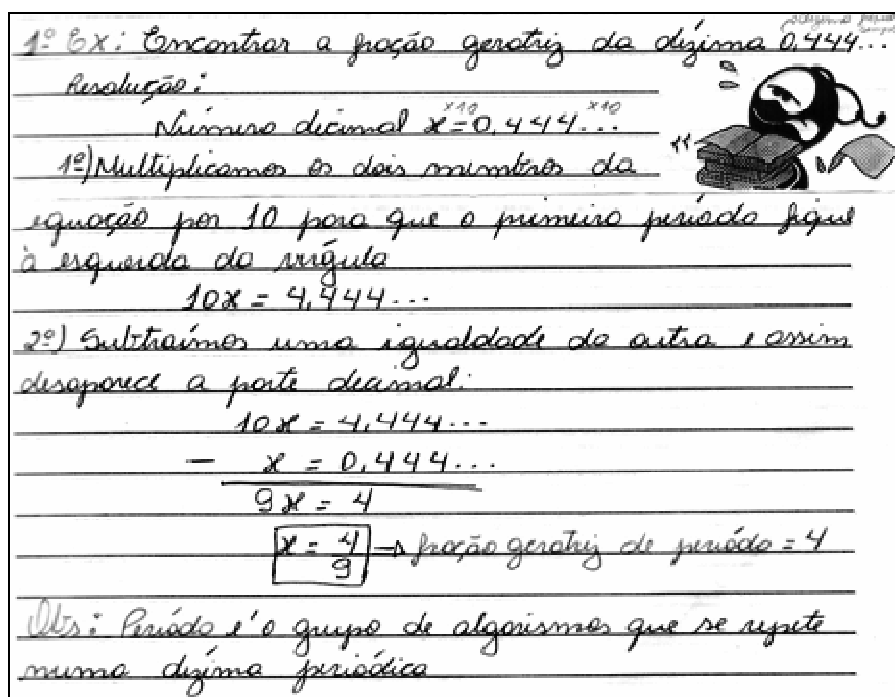 1º Ex: Encontrar a fração geratriz da dízima 0,444...
Resolução:
Número decimal x = 0,444...
x10 x10
1º) Multiplicamos os dois membros da
equação por 10 para que o primeiro período fique
à esquerda da vírgula
10x = 4,444...
2º) Subtraímos uma igualdade da outra e assim
desaparece a parte decimal:
10x = 4,444...
- x = 0,444...
9x = 4
x = 4/9 → fração geratriz de período = 4
Obs: Período é o grupo de algarismos que se repete
numa dízima periódica